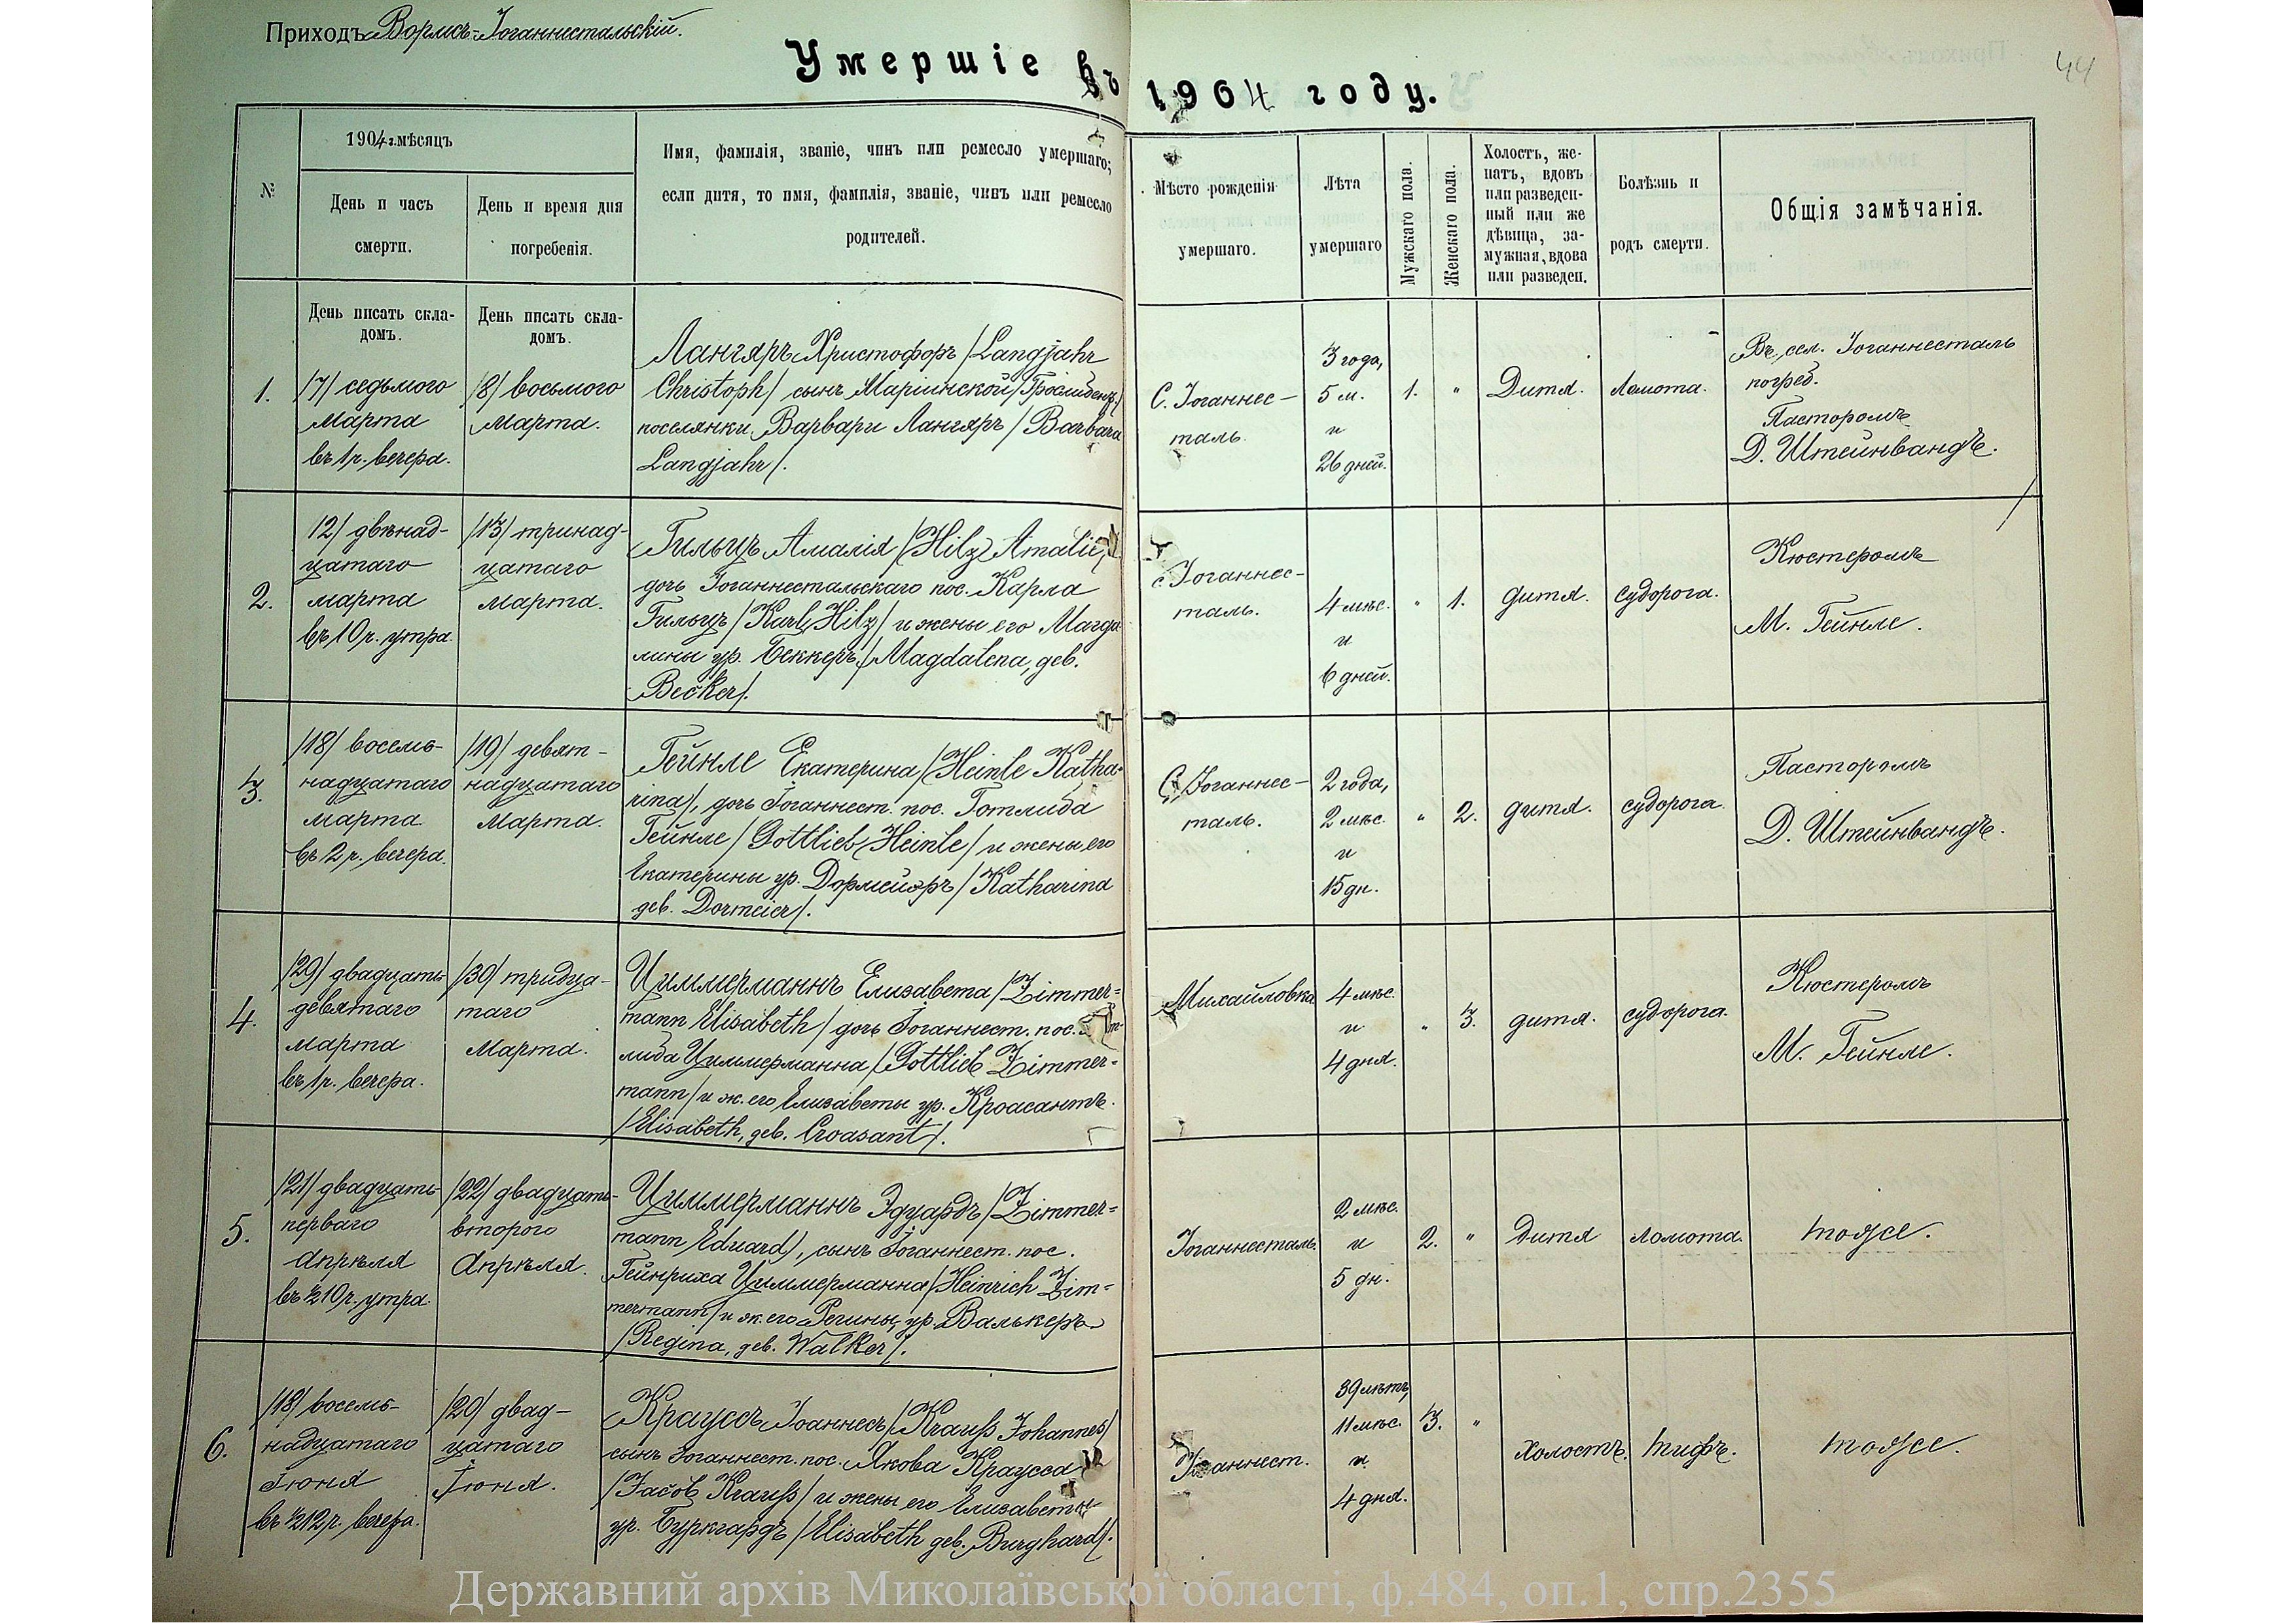 Приходъ Вормсъ-Іоганнестальскій.
44
Умершіе въ 1904 году.
№
1904 г. мѣсяцъ
День и часъ
смерти.
День и время дня
погребенія.
Имя, фамилія, званіе, чинъ или ремесло умершаго;
если дитя, то имя, фамилія, званіе, чинъ или ремесло
родителей.
Мѣсто рожденія
умершаго.
Лѣта
умершаго
Мужскаго пола.
Женскаго пола.
Холостъ, же-
натъ, вдовъ
или разведен-
ный или же
дѣвица, за-
мужная, вдова
или разведен.
Болѣзнь и
родъ смерти.
Общія замѣчанія.
День писать скла-
домъ.
День писать скла-
домъ.
1.
/7/ седьмого
Марта
въ 1 ч. вечера.
/8/ восьмого
Марта.
Лангяръ Христофоръ /Langjahr
Christoph/ сынъ Маріинской
поселянки Варвары Лангяръ /Barbara
Langjahr/.
С. Іоганнес-
таль.
3 года,
5 м.
и
26 дней.
1.
"
Дитя.
Ломота.
Въ сел. Іоганнесталь
погреб.
Пасторомъ
Д. Штейнвандъ.
2.
12/ двѣнад-
цатаго
марта
въ 10 ч. утра.
/13/ тринад-
цатаго
марта.
Гильцъ Амалія /Hilz Amalie/,
дочь Іоганнестальскаго пос. Карла
Гильцъ /Karl Hilz/ и жены его Магда
лины ур. Беккеръ /Magdalena, geb.
Becker/.
с. Іоганнес-
таль.
4 мѣс.
и
6 дней.
"
1.
дитя.
судорога.
Кюстеромъ
М. Гейнле.
3.
/18/ восемь-
надцатаго
марта
въ 2 ч. вечера.
/19/ девят-
надцатаго
Марта.
Гейнле Екатерина /Heinle Katha-
rina/, дочь Іоганнест. пос. Готлиба
Гейнле /Gottlieb Heinle/ и жены его
Екатерины ур. Дормейеръ /Katharina
geb. Dormeier/.
С. Іоганнес-
таль.
2 года,
2 мѣс.
и
15 дн.
"
2.
дитя.
судорога.
Пасторомъ
Д. Штейнвандъ.
4.
/29/ двадцать
девятаго
марта
въ 1 ч. вечера.
/30/ тридца-
таго
Марта.
Циммерманнъ Елизавета /Zimmer=
mann Elisabeth/ дочь Іоганнест. пос.
либа Циммерманна /Gottlieb Zimmer=
mann/ и ж. его Елизаветы ур. Кроасантъ.
/Elisabeth, geb. Croasant/.
Михайловка
4 мѣс.
и
4 дня.
"
3.
дитя.
судорога.
Кюстеромъ
М. Гейнле.
5.
/21/ двадцать
перваго
Апрѣля
въ ½10 ч. утра.
/22/ двадцать-
второго
Апрѣля.
Циммерманнъ Эдуардъ /Zimmer=
mann Eduard/, сынъ Іоганнест. пос.
Гейнриха Циммерманна /Heinrich Zim=
mermann/ и ж. его Регины, ур. Валькеръ
/Regina, geb. Walker/.
Іоганнесталь
2 мѣс.
и
5 дн.
2.
"
Дитя
Ломота.
тоже.
6.
/18/ восемь-
надцатаго
Іюня
въ ½12 ч. вечера.
/20/ двад-
цатаго
Іюня.
Крауссъ Іоаннесъ /Krauß Johannes/
сынъ Іоганнест. пос. Якова Краусса
/Jacob Krauß/ и жены его Елизаветы
ур. Бургардъ /Elisabeth geb. Burghard/.
Іоганнест.
39 лѣтъ,
11 мѣс.
и
4 дня.
3.
"
холостъ.
тифъ.
тоже.
Державний архів Миколаївської області, ф.484, оп.1, спр.2355